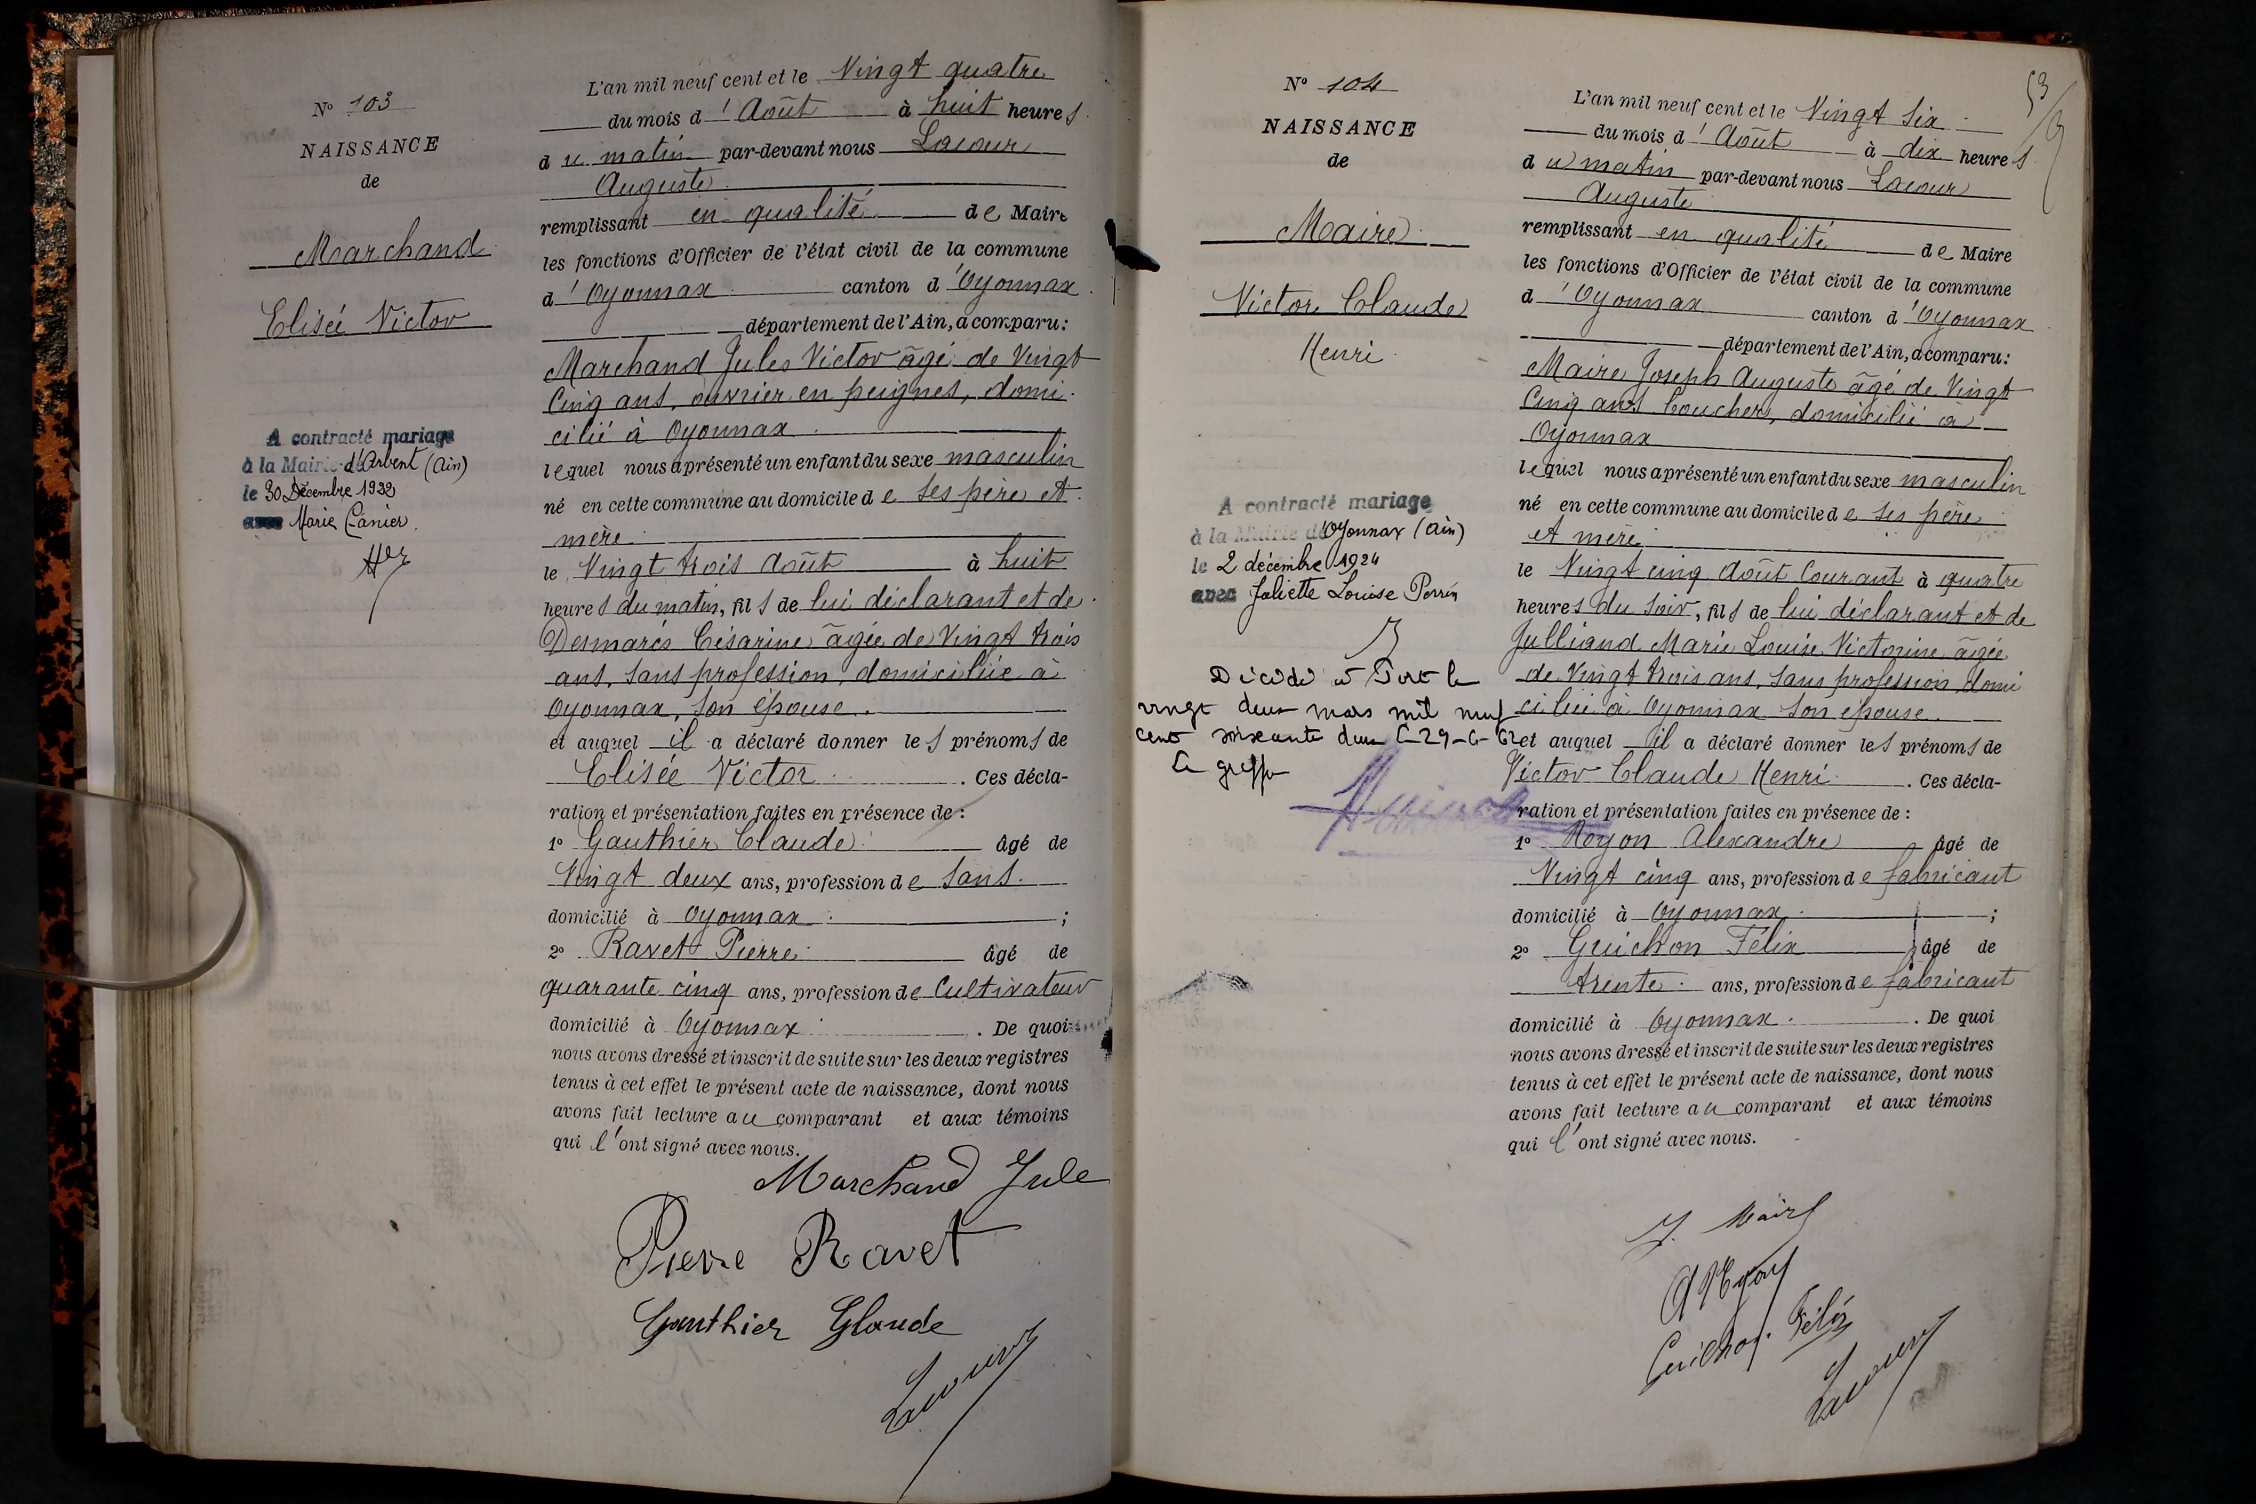 N° 103
NAISSANCE
de
Marchand
Elisée Victor
A contracté mariage
à la Mairie d'Arbent (Ain)
le 30 Décembre 1922
avec Marie
L'an mil neuf cent et le Vingt quatre
du mois d'Août à huit heures
du matin par-devant nous Lacour
Auguste
remplissant en qualité de Maire
les fonctions d'Officier de l'état civil de la commune
d'Oyonnax canton d'Oyonnax
département de l'Ain, a comparu:
Marchand Jules Victor âgé de Vingt
Cinq ans, ouvrier en peignes, domi-
cilié à Oyonnax
lequel nous a présenté un enfant du sexe masculin
né en cette commune au domicile de ses père et
mère
le Vingt trois Août à huit
heures du matin, fils de lui déclarant et de
Desmaris Césarine âgée de Vingt trois
ans, sans profession, domiciliée à
Oyonnax, son épouse.
et auquel il a déclaré donner les prénoms de
Elisée Victor. Ces décla-
ration et présentation faites en présence de :
1° Gauthier Claude âgé de
Vingt deux ans, profession de sans
domicilié à Oyonnax ;
2° Ravet Pierre âgé de
quarante cinq ans, profession de Cultivateur
domicilié à Oyonnax. De quoi
nous avons dressé et inscrit de suite sur les deux registres
tenus à cet effet le présent acte de naissance, dont nous
avons fait lecture au comparant et aux témoins
qui l'ont signé avec nous.
Marchand Jule
Pierre Ravet
Gauthier Glaude
Lacour
53
N° 104
NAISSANCE
de
Maire
Victor Claude
Henri
A contracté mariage
à la Mairie de Oyonnax (Ain)
le 2 décembre 1924
avec Juliette Louise Perrin
Décédé à le
vingt deux mars mil neuf
cent soixante deux 62
Le greffier
L'an mil neuf cent et le Vingt six
du mois d'Août à dix heures
du matin par-devant nous Lacour
Auguste
remplissant en qualité de Maire
les fonctions d'Officier de l'état civil de la commune
d'Oyonnax canton d'Oyonnax
département de l'Ain, a comparu:
Maire Joseph Auguste âgé de Vingt
Cinq ans boucher, domicilié à
Oyonnax
lequel nous a présenté un enfant du sexe masculin
né en cette commune au domicile de ses père
et mère
le Vingt cinq Août Courant à quatre
heures du soir, fils de lui déclarant et de
Julliand Marie Louise Victorine âgée
de Vingt trois ans, sans profession, domi
ciliée à Oyonnax son épouse
et auquel il a déclaré donner les prénoms de
Victor Claude Henri. Ces décla-
ration et présentation faites en présence de :
1° Noyon Alexandre âgé de
Vingt cinq ans, profession de fabricant
domicilié à Oyonnax ;
2° Guichon Félix âgé de
trente ans, profession de fabricant
domicilié à Oyonnax. De quoi
nous avons dressé et inscrit de suite sur les deux registres
tenus à cet effet le présent acte de naissance, dont nous
avons fait lecture au comparant et aux témoins
qui l'ont signé avec nous.
J. Maire
Guichon Félix
Lacour